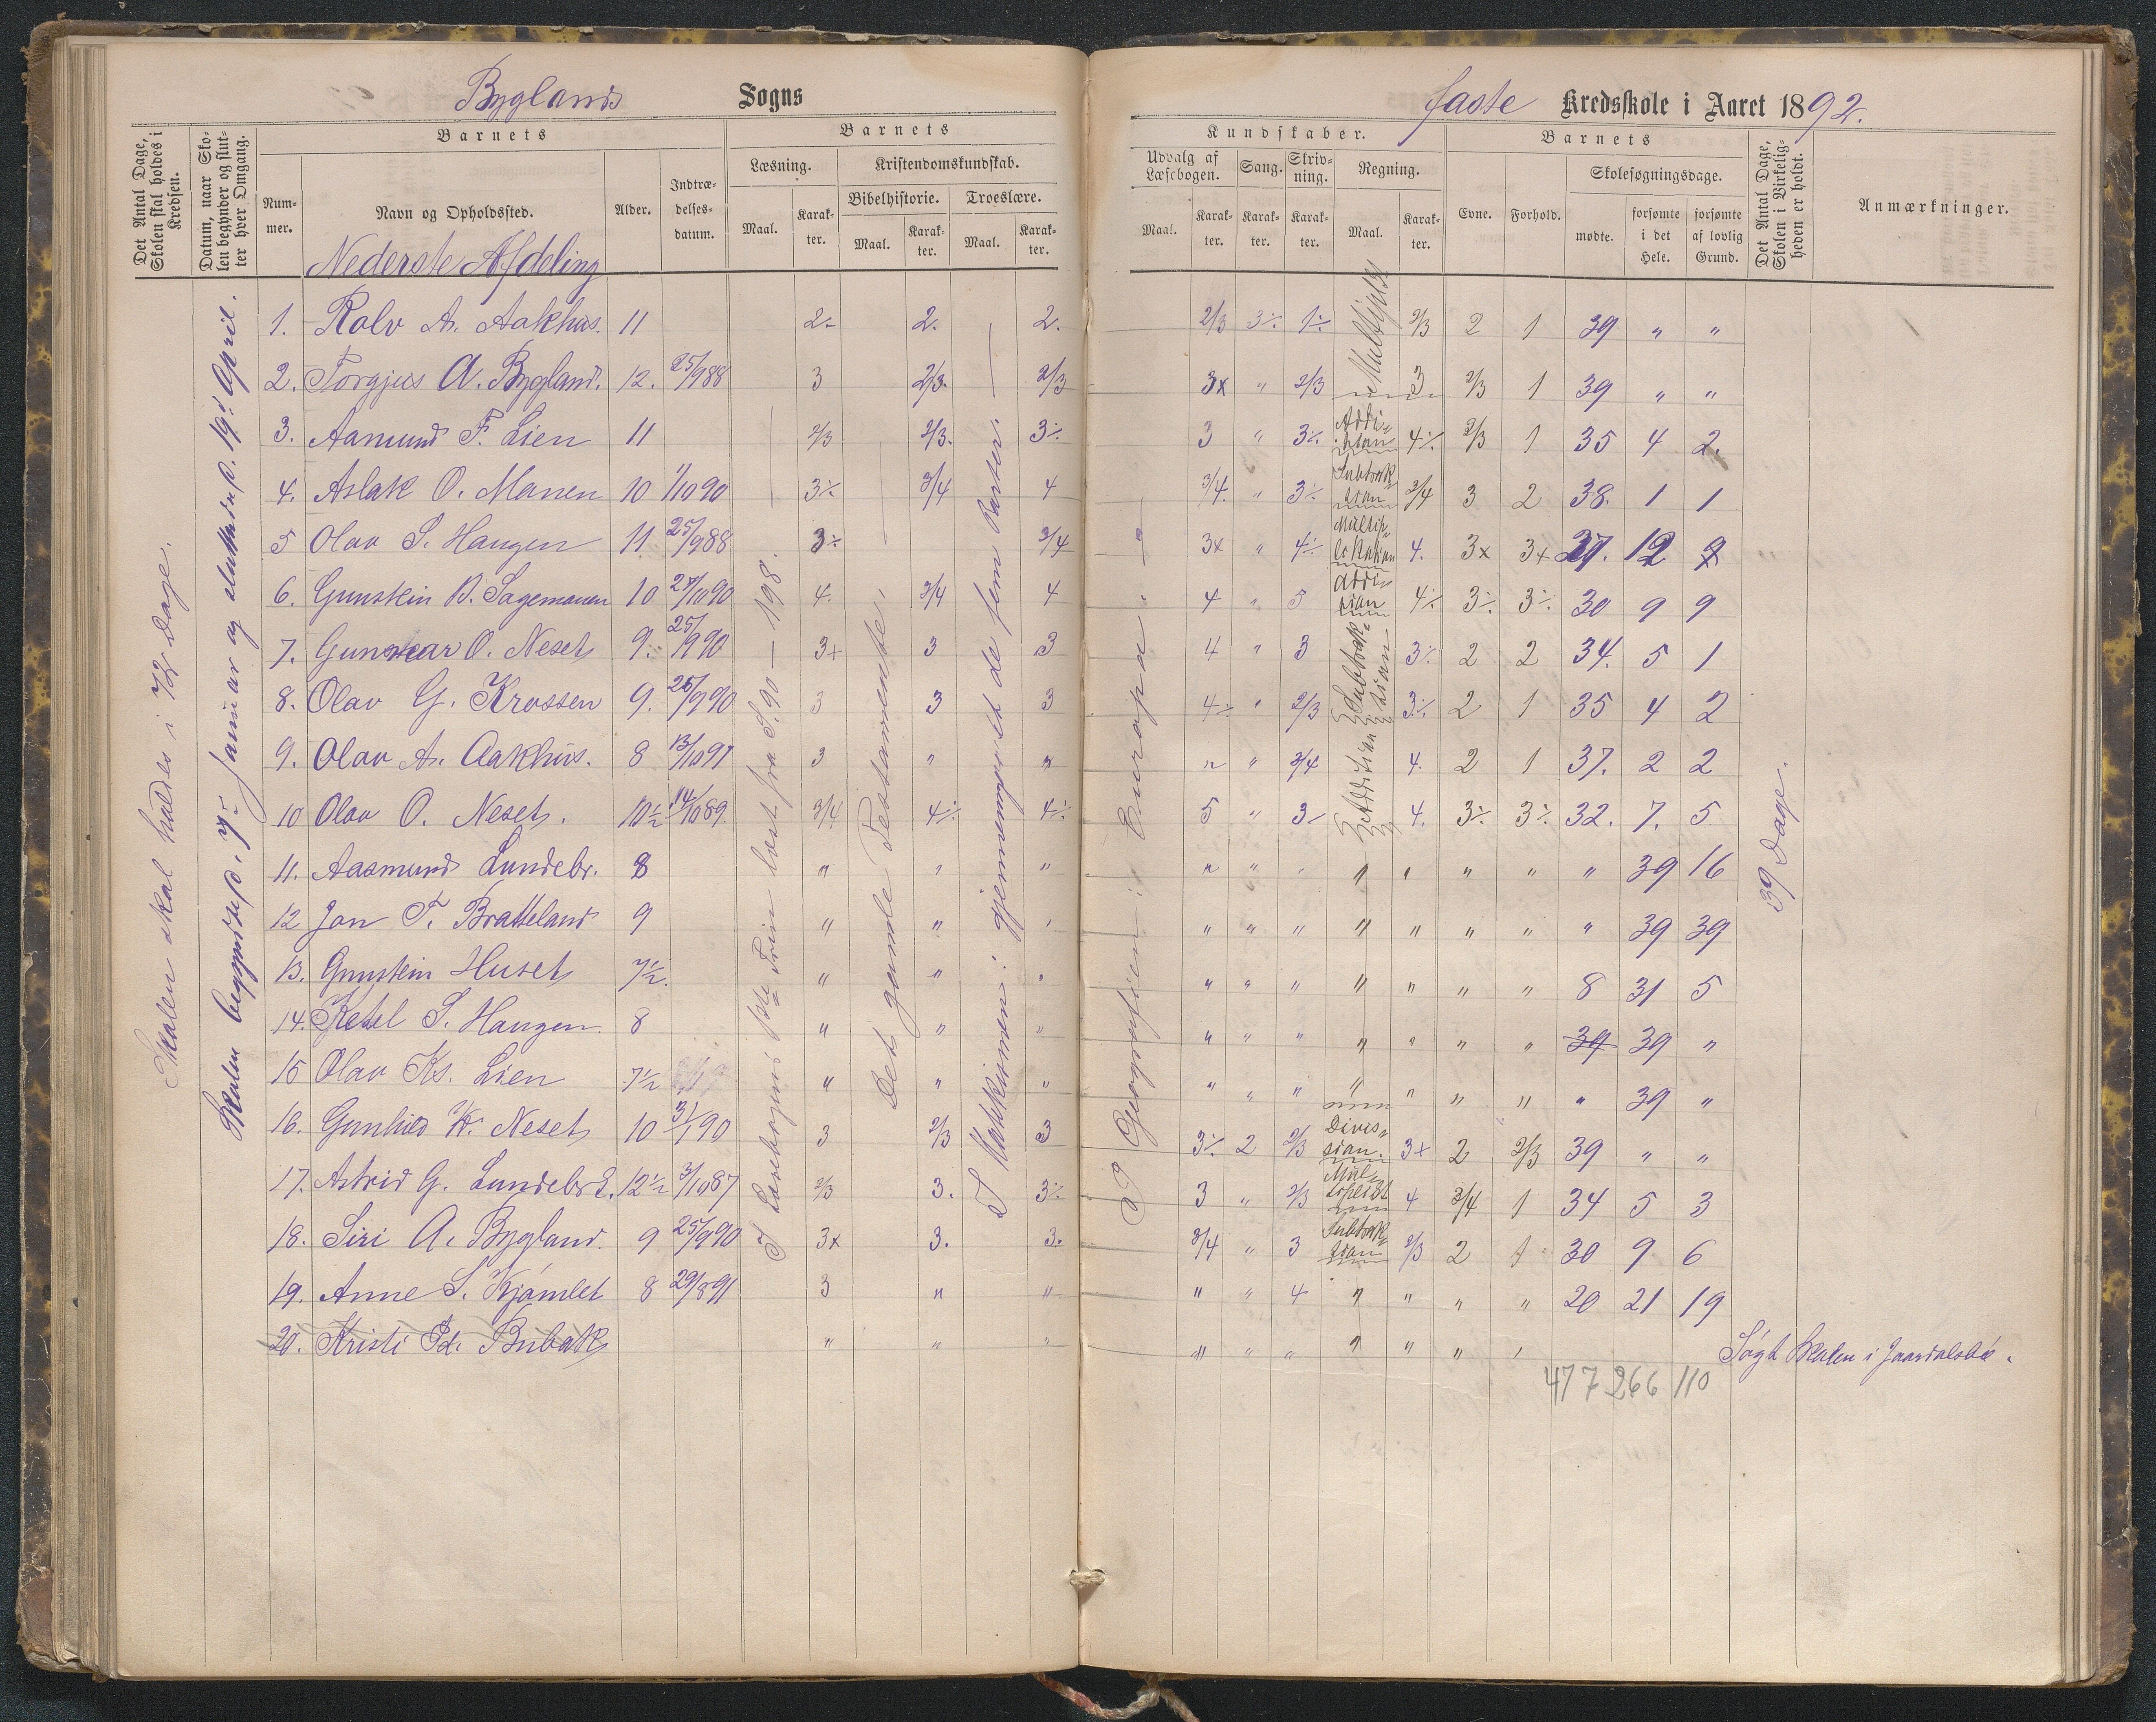 Byglands Sogns
Det Antal Dage, Skolen skal holdes i Kredsen.
Datum, naar Skolen begynder og slutter hver Omgang.
Barnets
Nummer.
Navn og Opholdssted.
Alder.
Indtrædelsesdatum.
Barnets
Læsning.
Maal.
Karakter.
Kristendomskundskab.
Bibelhistorie.
Maal.
Karakter.
Troeslære.
Maal.
Karakter.
Nederste Afdeling
Skolen skal holdes i 72 dage.
Skolen begyndte d. 7de Januar og sluttede d. 19d April.
I Læsebogens 1ste Trin læst fra S. 90 — 198.
Det gamle Testamente.
I Katekismen: gjennemgaaet de fem Parter.
1. Rolv A. Aakhus. 11 2- 2. 2.
2. Torgjus A. Bygland. 12. 25/988 3 2/3. 2/3
3. Aamund F. Lien 11 2/3 2/3. 3÷
4. Aslak O. Manen 10 1/1090 3÷ 3/4 4
5 Olav S. Haugen 11 25/988 3÷ 3/4
6. Gunstein B. Sagemanen 10 27/1090 4. 3/4 4
7. Gunnar O. Neset 9. 25/990 3+ 3 3
8. Olav G. Krossen 9. 25/990 3 3 3
9. Olav A. Aakhus. 8 13/1091 3 " "
10 Olav O. Neset. 10½ 14/1089. 3/4 4÷ 4÷
11. Aasmund Lundebr. 8 " " "
12 Jon T. Bratteland 9 " " "
13. Gunstein Huset 7½. " " "
14. Ketel S. Haugen. 8 " " "
15 Olav Ks. Lien 7½ " " "
16. Gunhild K. Neset 10 31/790 3 2/3 3
17. Astrid G. Lundebr. 12½ 3/1087 2/3 3. 3÷
18. Siri A. Bygland. 9 25/990 3x 3. 3.
19. Anne S. Kjømlet 8 29/891 3 " "
20. Kristi Pd. Bubak " " "
faste Kredsskole i Aaret 1892.
Kundskaber.
Udvalg af Læsebogen.
Maal.
Karakter.
Sang.
Karakter.
Skrivning.
Karakter.
Regning.
Maal.
Karakter.
Barnets
Evne.
Forhold.
Skolesøgningsdage.
mødte.
forsømte i det Hele.
forsømte af lovlig Grund.
Det Antal Dage, Skolen i Virkeligheden er holdt.
Anmærkninger.
Geografien: Europa.
39 Dage.
2/3 3÷ 1÷ 2/3 2 1 39 " "
3x " 2/3 3 2/3 1 39 " "
3 " 3÷ Addision 4÷ 2/3 1 35 4 2.
3/4. " 3÷ Subtraksion 3/4 3 2 38. 1 1
3x " 4÷ Multiplikation 4. 3x 3+ 27. 12 9
4 " 5 Addision 4÷ 3÷ 3÷ 30 9 9
4 " 3 Subtraksion 3÷ 2 2 34. 5 1
4÷ " 2/3 3÷ 2 1 35 4 2
" " 3/4 Addision 4. 2 1 37. 2 2
5 " 3- 4. 3÷ 3÷ 32. 7. 5
" " " " " " " " 39 16
" " " " " " " " 39 39
" " " " " " " 8 31 5
" " " " " " " 39 39 "
" " " " " " " " 39 "
3÷ 2 2/3 Division. 3+ 2 2/3 39 " "
3 " 2/3 4 3/4 1 34 5 3
3/4 " 3 Subtraksion 2/3 2 1 30 9 6
" " 4 " " " " 20 21 19
" " " " " " " Søgt Skolen i
477 266 110